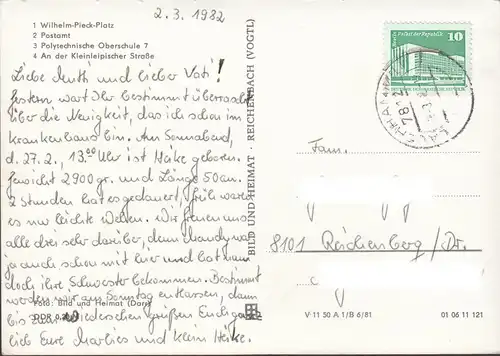 2.3.1982
1 Wilhelm-Pieck-Platz
2 Postamt
3 Polytechnische Oberschule 7
4 An der Kleinleipischer Straße
Liebe und lieber Vati!
gestern wart Ihr bestimmt überrascht
über die Neuigkeit, das ich schon im
Krankenhaus bin. Am Sonnabend,
d. 27.2., 13.00 Uhr ist Heike geboren.
Gewicht 2900 gr. und Länge 50 cm.
7 Stunden hat es gedauert, früh waren
es nur leichte Wehen. Wir freuen uns
alle drei sehr darüber, denn Mandy war
ja auch schon mit hier und hat nun
doch ihre Schwester bekommen. Bestimmt
werden wir am Sonntag entlassen, dann
bis zum Wiedersehen grüßen Euch ganz
lieb Eure Marlies und klein Heike.
Foto: Bild und Heimat (Darr)
DDR
BILD UND HEIMAT · REICHENBACH (VOGTL)
Palast der Republik
10
LAUCHHAMMER
7812
Fam.
8101 Reichenberg/Dr.
V 11 50 A 1/B 6/81
01 06 11 121